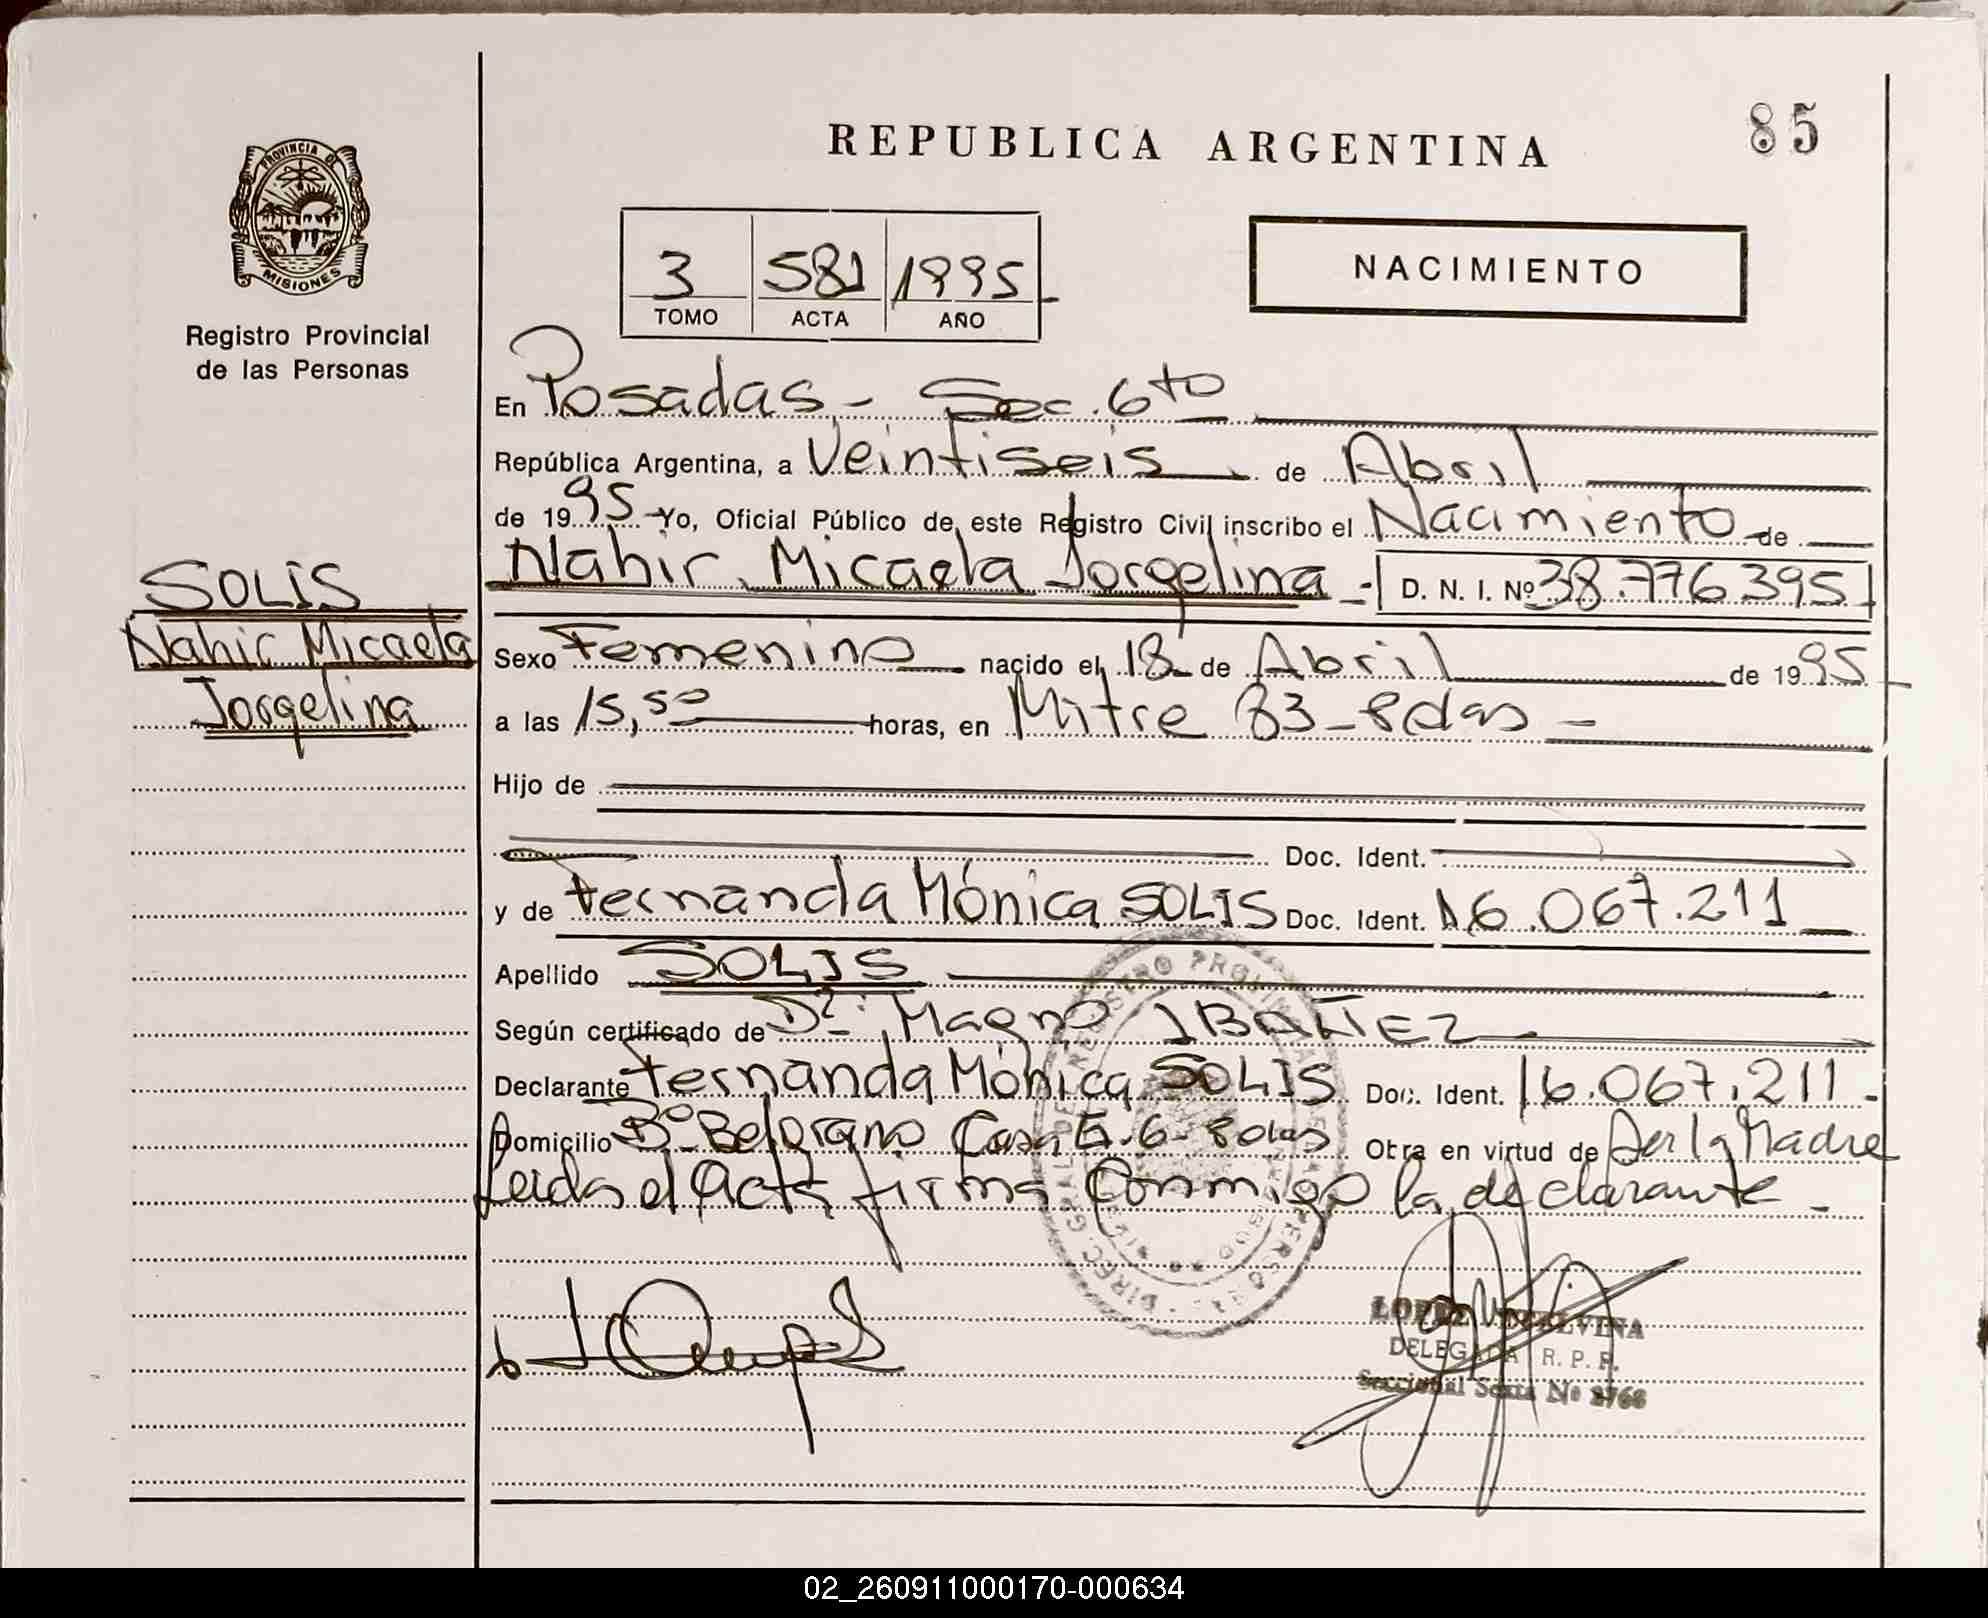 REPUBLICA ARGENTINA
85
PROVINCIA DE
MISIONES
Registro Provincial
de las Personas
3 581 1995
TOMO ACTA AÑO
NACIMIENTO
En Posadas - Sec. 6to
República Argentina, a Veintiseis de Abril
de 1995 Yo, Oficial Público de este Registro Civil inscribo el Nacimiento de
Nahir Micaela Jorgelina - D. N. I. Nº 38.776.395
SOLIS
Nahir Micaela
Jorgelina
Sexo Femenino nacido el 18 de Abril de 1995
a las 15,50 horas, en Mitre 83 - Pdas -
Hijo de
Doc. Ident.
y de Fernanda Mónica SOLIS Doc. Ident. 16.067.211
Apellido SOLIS
Según certificado de Dr. Magno IBAÑEZ
Declarante Fernanda Mónica SOLIS Doc. Ident. 16.067.211 -
Domicilio Bº Belgrano Casa E-6- Pdas Otra en virtud de Ser la Madre
Leida el Acta firma Conmigo la declarante -
LOPEZ
DELEGADA R. P. P.
Seccional Sexta Nº 2768
02_260911000170-000634